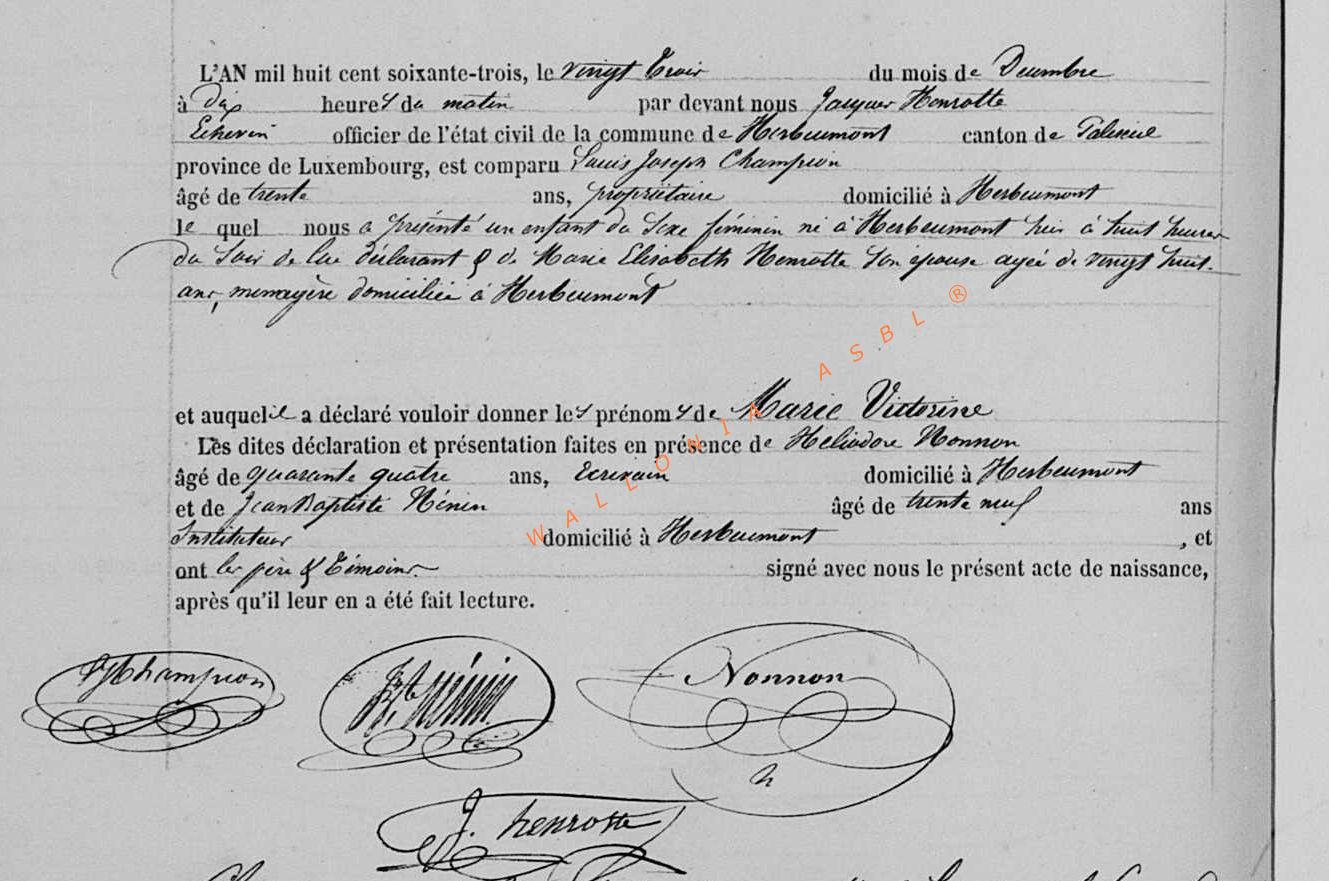 L'AN mil huit cent soixante-trois, le vingt trois du mois de Decembre
à dix heures du matin par devant nous Jacques Henrotte
Echevin officier de l'état civil de la commune de Herbeumont canton de Paliseul
province de Luxembourg, est comparu Louis Joseph Champion
âgé de trente ans, propriétaire domicilié à Herbeumont
le quel nous a présenté un enfant du sexe féminin né à Herbeumont hier à huit heures
du soir de lui déclarant & de Marie Elisabeth Henrotte son épouse agée de vingt huit
ans, menagère domiciliée à Herbeumont
et auquel il a déclaré vouloir donner les prénoms de Marie Victorine
Les dites déclaration et présentation faites en présence de Héliodore Nonnon
âgé de quarante quatre ans, Ecrivain domicilié à Herbeumont
et de Jean Baptiste Nénin âgé de trente neuf ans
Instituteur domicilié à Herbeumont , et
ont les père & témoins signé avec nous le présent acte de naissance,
après qu'il leur en a été fait lecture.
Champion Nénin Nonnon
J. henrotte
WALLONIA ASBL ®